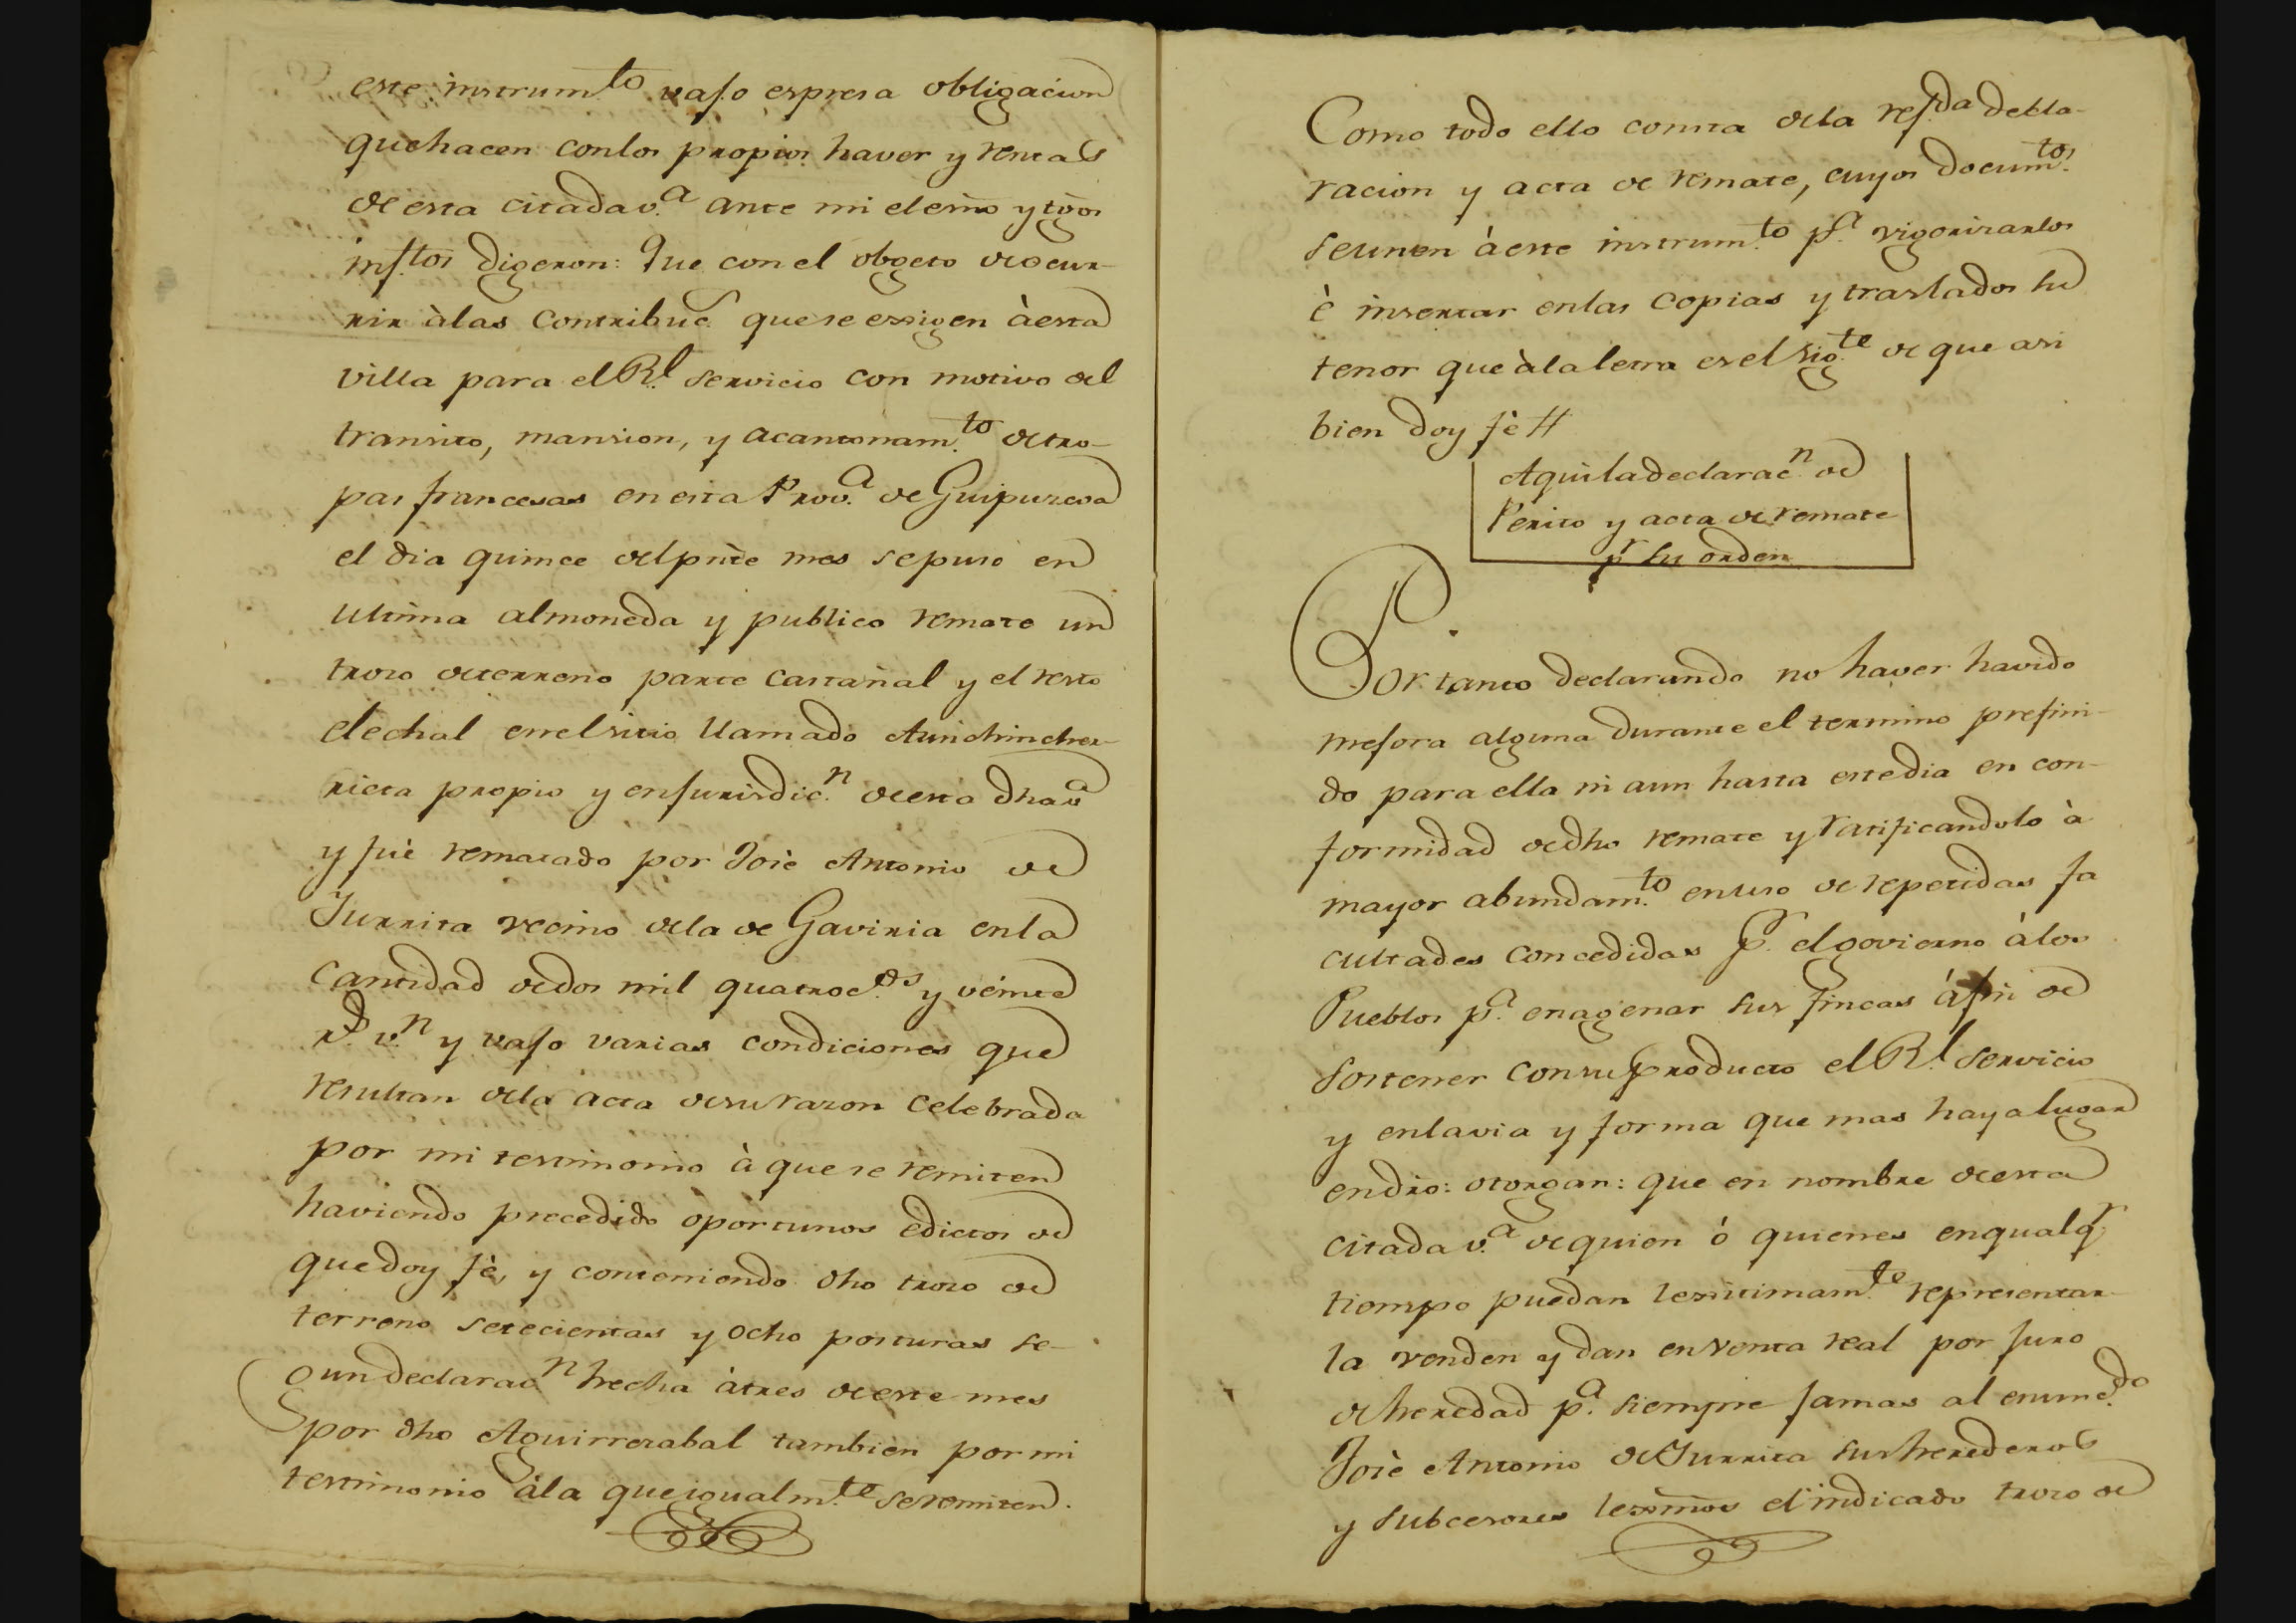 este instrum.to vajo espresa obligacion
que hacen con los propios haver y rentas
de esta citada v.a ante mi el esño y tgos
inf.tos digeron: Que con el obgeto de ocur-
rir à las Contribuc.s que se exsigen à esta
villa para el R.l servicio con motivo del
transito, mansion, y acantonam.to de tro-
pas francesas en esta Prov.a de Guipuzcoa
el dia quince del pñte mes se puso en
ultima almoneda y publico remate un
trozo de terreno parte Castañal y el resto
elechal en el sitio llamado
propio y en jurisdic.n de esta dha v.a
y fuè remarado por Josè Antonio de
Iurrita vecino de la de Gaviria en la
Cantidad de dos mil quatroc.os y veinte
r.s v.n y vajo varias condiciones que
resultan de la acta de su razon celebrada
por mi testimonio à que se remiten
haviendo precedido oportunos edictos de
que doy fè, y conteniendo dho trozo de
terreno setecientas y ocho posturas se-
gun declarac.n hecha à tres de este mes
por dho Aguirrezabal tambien por mi
testimonio à la que igualm.te se remiten.
Como todo ello consta de la ref.da decla-
racion y acta de remate, cuyos docum.tos
se unen à este instrum.to p.a vigorizarlos
è insertar en las copias y traslados su
tenor que à la letra es el sig.te de que asi
bien doy fè //
Aqui la declarac.n de
Perito y acta de remate
p.r su orden
Por tanto declarando no haver havido
mejora alguna durante el termino prefini-
do para ella ni aun hasta este dia en con-
formidad de dho remate y ratificandolo à
mayor abundam.to en uso de repetidas fa
cultades concedidas p.r el govierno à los
Pueblos p.a enagenar sus fincas à fin de
sostener con su producto el R.l servicio
y en la via y forma que mas haya lugar
en dro: otorgan: que en nombre de esta
citada v.a de quien ò quienes en qualq.r
tiempo puedan lexitimam.te representar-
la venden y dan en venta real por juro
de heredad p.a siempre jamas al enunc.do
Josè Antonio de Iurrita sus herederos
y subcesores lexmos el indicado trozo de